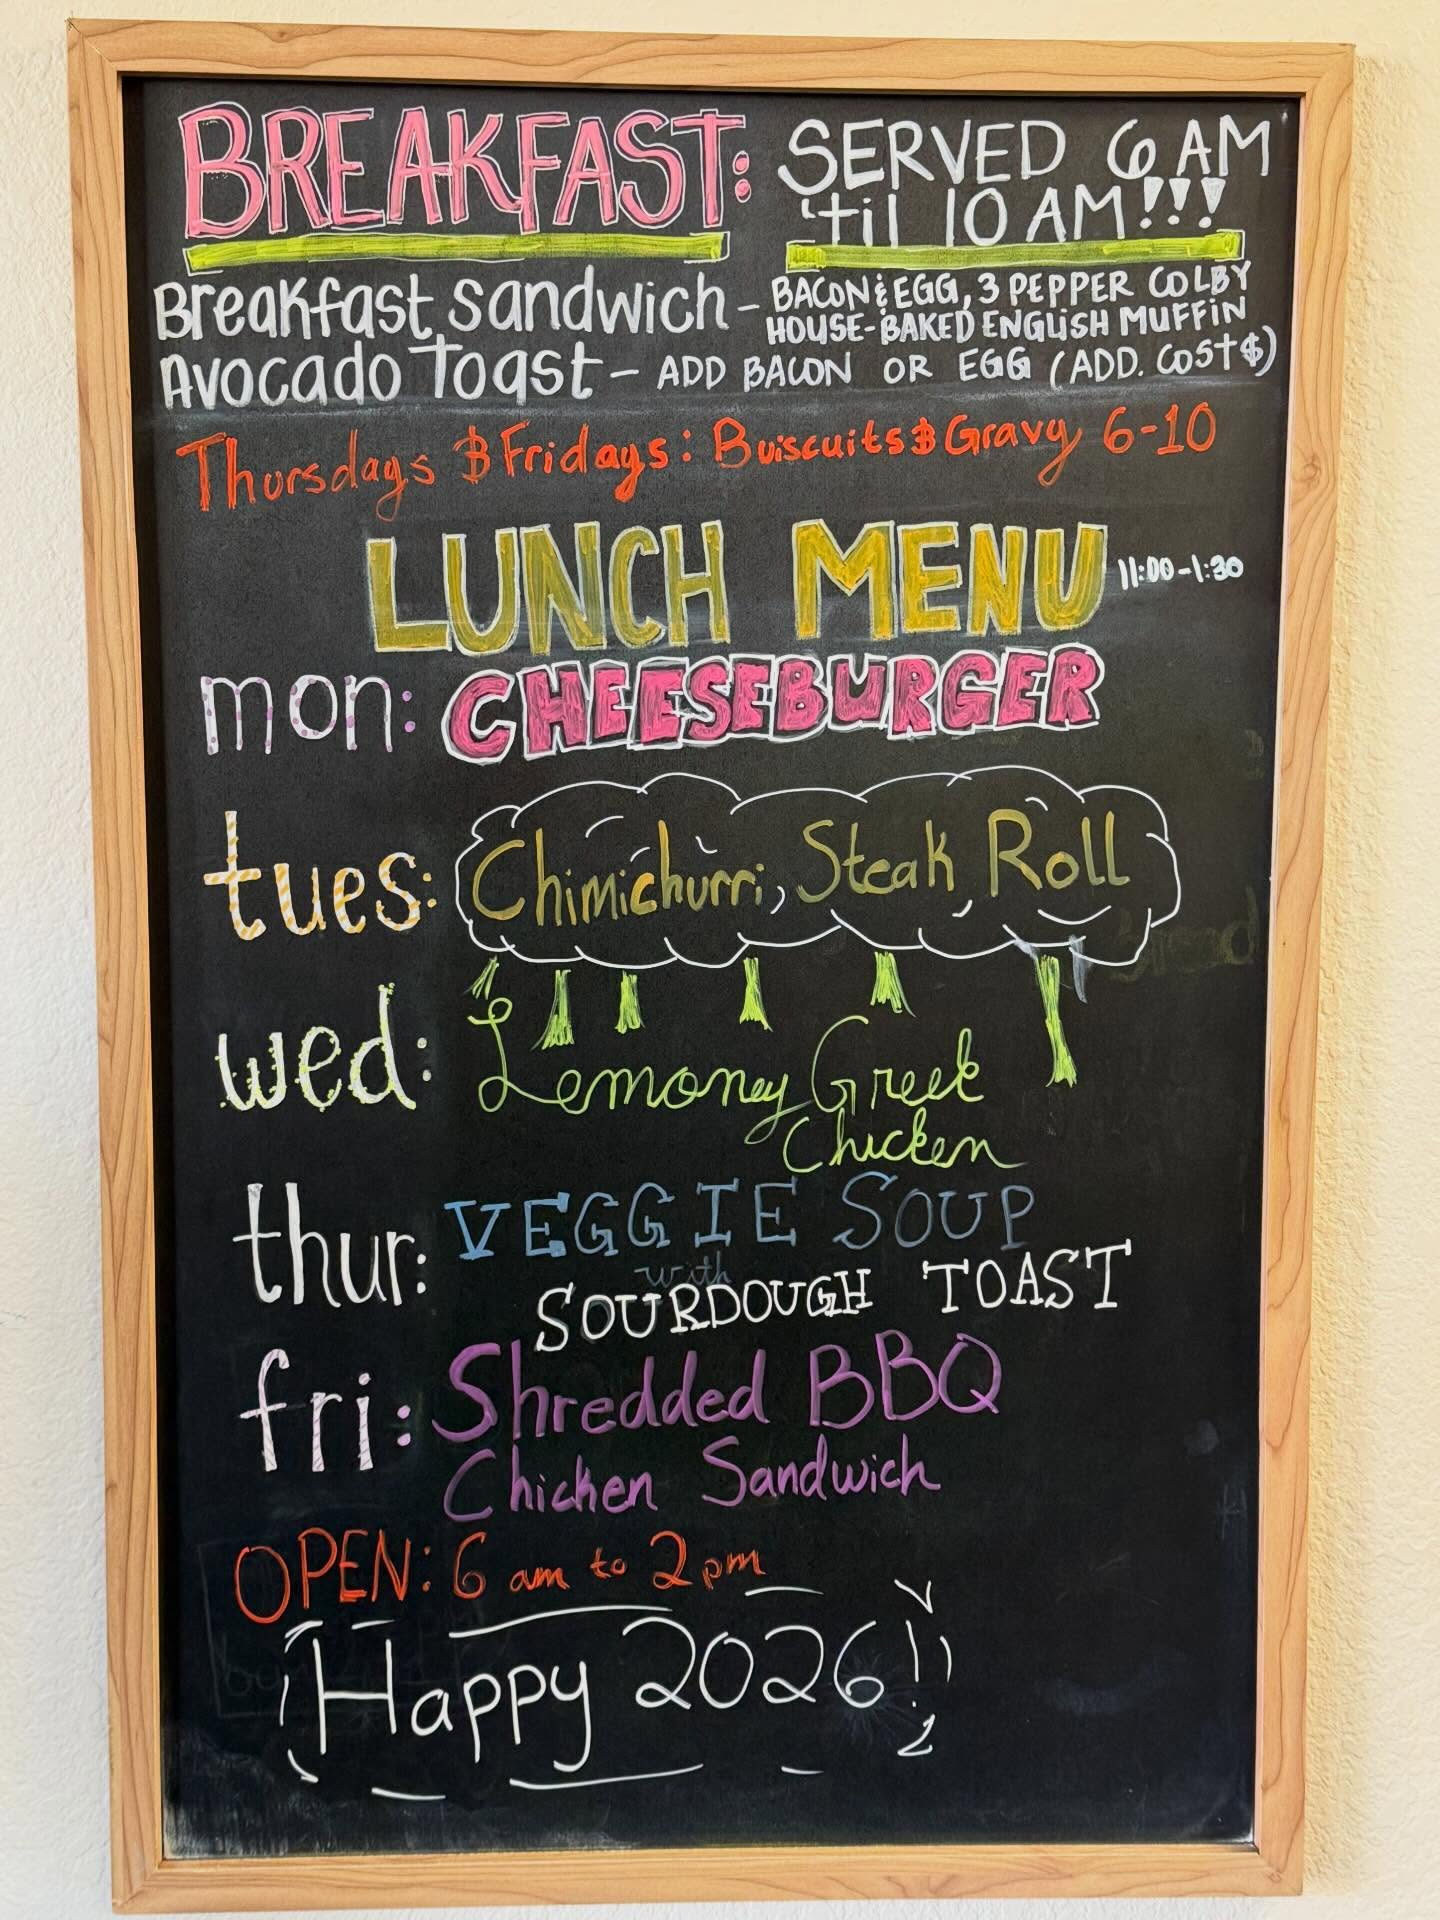 BREAKFAST: SERVED 6 AM
'til 10 AM!!!
Breakfast sandwich - BACON & EGG, 3 PEPPER COLBY
HOUSE-BAKED ENGLISH MUFFIN
Avocado Toast - ADD BACON OR EGG (ADD. COST $)
Thursdays & Fridays: Buiscuits & Gravy 6-10
LUNCH MENU 11:00-1:30
mon: CHEESEBURGER
tues: Chimichurri, Steak Roll
wed: Lemoney Greek
Chicken
thur: VEGGIE SOUP
with
SOURDOUGH TOAST
fri: Shredded BBQ
Chicken Sandwich
OPEN: 6 am to 2 pm
Happy 2026!